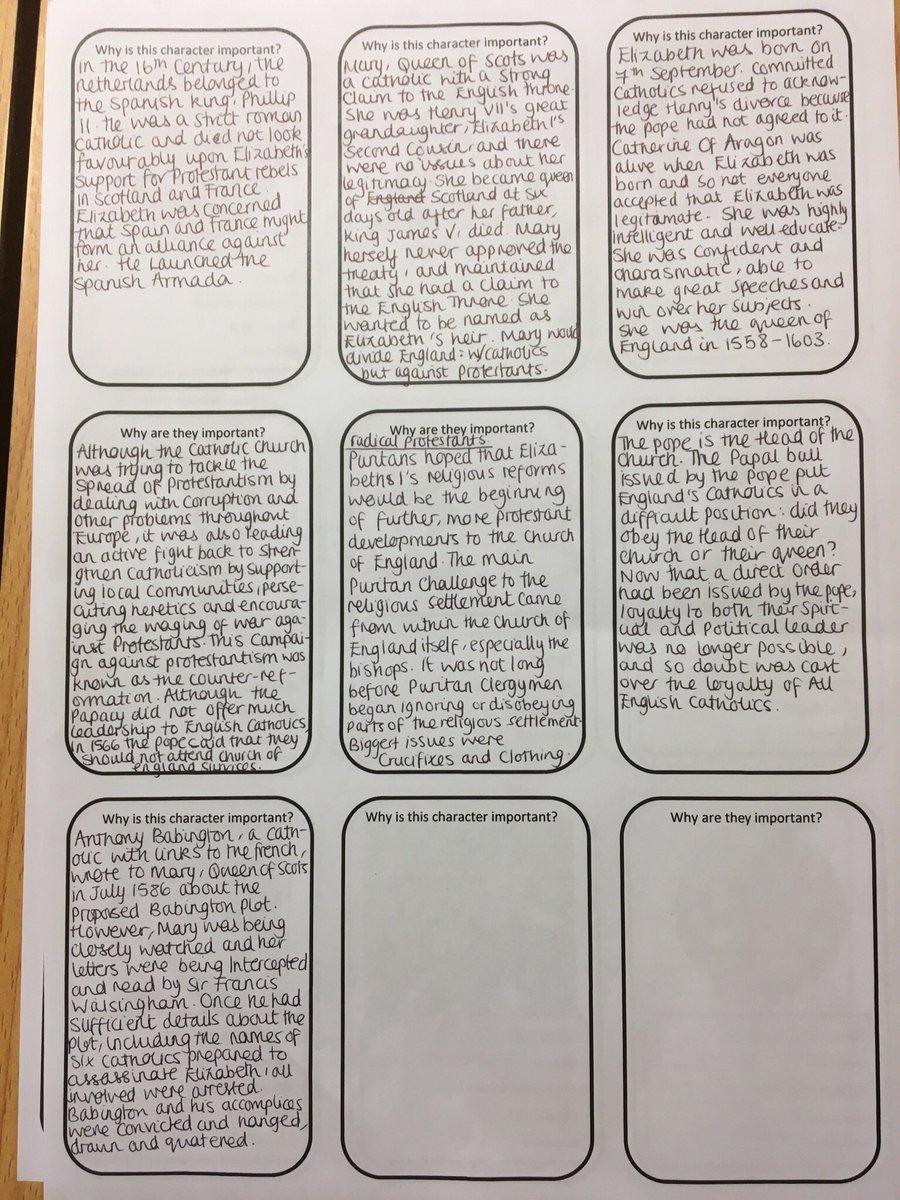 Why is this character important?
In the 16th Century, the
netherlands belonged to
the Spanish king, Phillip
II. He was a strict roman
Catholic and did not look
favourably upon Elizabeth's
support for Protestant rebels
in Scotland and France.
Elizabeth was concerned
that Spain and France might
form an alliance against
her. He Launched the
Spanish Armada.
Why is this character important?
Mary, Queen of Scots was
a catholic with a strong
Claim to the English throne.
She was Henry VII's great
grandaughter, Elizabeth I's
second cousin, and there
were no issues about her
legitimacy. She became queen
of England Scotland at six
days old after her father,
King James V, died. Mary
herself never approved the
treaty, and maintained
that she had a claim to
the English Throne. She
wanted to be named as
Elizabeth's heir. Mary would
divide England: w/catholics
but against protestants.
Why is this character important?
Elizabeth was born on
7th September. Committed
Catholics refused to acknow-
ledge Henry's divorce because
the pope had not agreed to it.
Catherine Of Aragon was
alive when Elizabeth was
born and so not everyone
accepted that Elizabeth was
legitamate. She was highly
intelligent and well-educate-
She was confident and
charasmatic, able to
make great speeches and
win over her subjects.
She was the queen of
England in 1558-1603.
Why are they important?
Although the Catholic Church
was trying to tackle the
spread of Protestantism by
dealing with Corruption and
other problems throughout
Europe, it was also leading
an active fight back to stren-
gthen Catholicism by support-
ing local communities, perse-
cuting heretics and encoura-
ging the waging of war aga-
inst Protestants. This Campai-
gn against protestantism was
known as the counter-ref-
ormation. Although the
Papacy did not offer much
leadership to English Catholics,
in 1566 the pope said that they
should not attend church of
england services.
Why are they important?
radical Protestants.
Puritans hoped that Eliza-
beths I's religious reforms
would be the beginning
of further, more protestant
developments to the Church
of England. The main
Puritan Challenge to the
religious settlement came
from within the Church of
England itself, especially the
bishops. It was not long
before Puritan Clergymen
began ignoring or disobeying
parts of the religious settlement.
Biggest issues were
Crucifixes and Clothing.
Why is this character important?
The pope is the Head of the
Church. The Papal bull
issued by the pope put
England's Catholics in a
difficult position: did they
obey the Head of their
church or their queen?
Now that a direct order
had been issued by the pope,
loyalty to both their Spirit-
ual and political leader
was no longer possible,
and so doubt was cast
over the loyalty of All
English Catholics.
Why is this character important?
Anthony Babington, a cath-
olic with links to the french,
wrote to Mary, Queen of Scots
in July 1586 about the
Proposed Babington Plot.
However, Mary was being
closely watched and her
letters were being Intercepted
and read by Sir Francis
Walsingham. Once he had
sufficient details about the
plot, including the names of
six catholics prepared to
assassinate Elizabeth, all
involved were arrested.
Babington and his accomplices
were convicted and hanged,
drawn and quatened.
Why is this character important?
Why are they important?